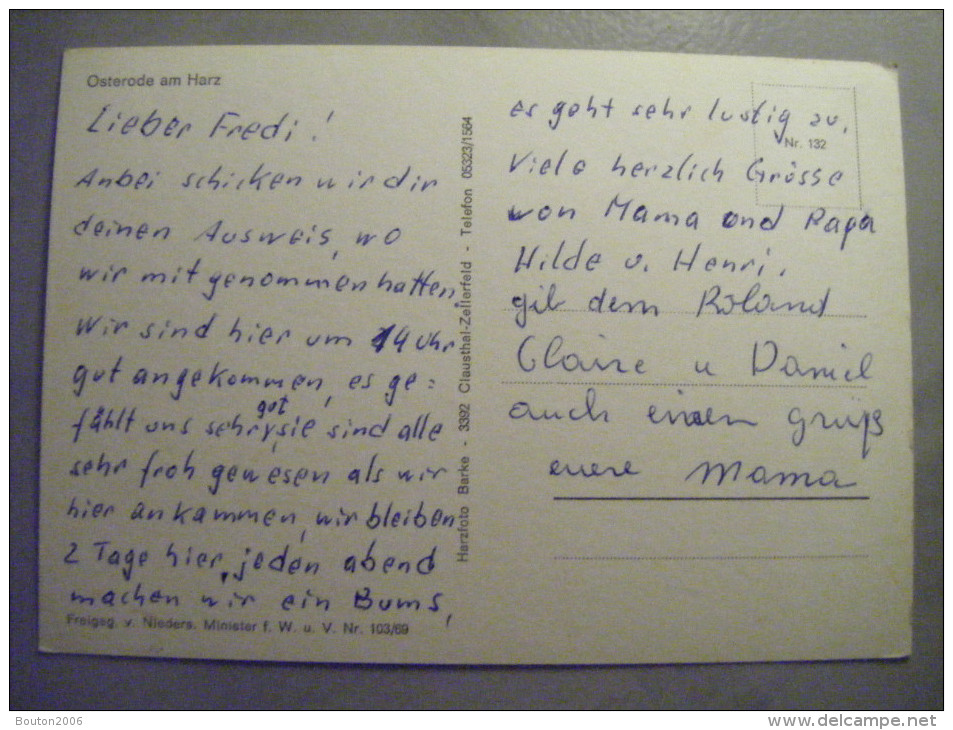 Osterode am Harz
Lieber Fredi!
Anbei schicken wir dir
deinen Ausweis, wo
wir mit genommen hatten.
Wir sind hier um 14 Uhr
gut angekommen, es ge=
fählt uns sehr gut, sie sind alle
sehr froh gewesen als wir
hier an kammen, wir bleiben
2 Tage hier, jeden abend
machen wir ein Bums,
Freigeg. v. Nieders. Minister f. W. u. V. Nr. 103/69
Harzfoto Barke - 3392 Clausthal-Zellerfeld - Telefon 05323/1564
Nr. 132
es geht sehr lustig zu.
Viele herzlich Grösse
von Mama und Papa
Hilde u. Henri.
gib dem Roland
Claire u Daniel
auch einen gruß
euere Mama
Bouton2006
delcampe.net